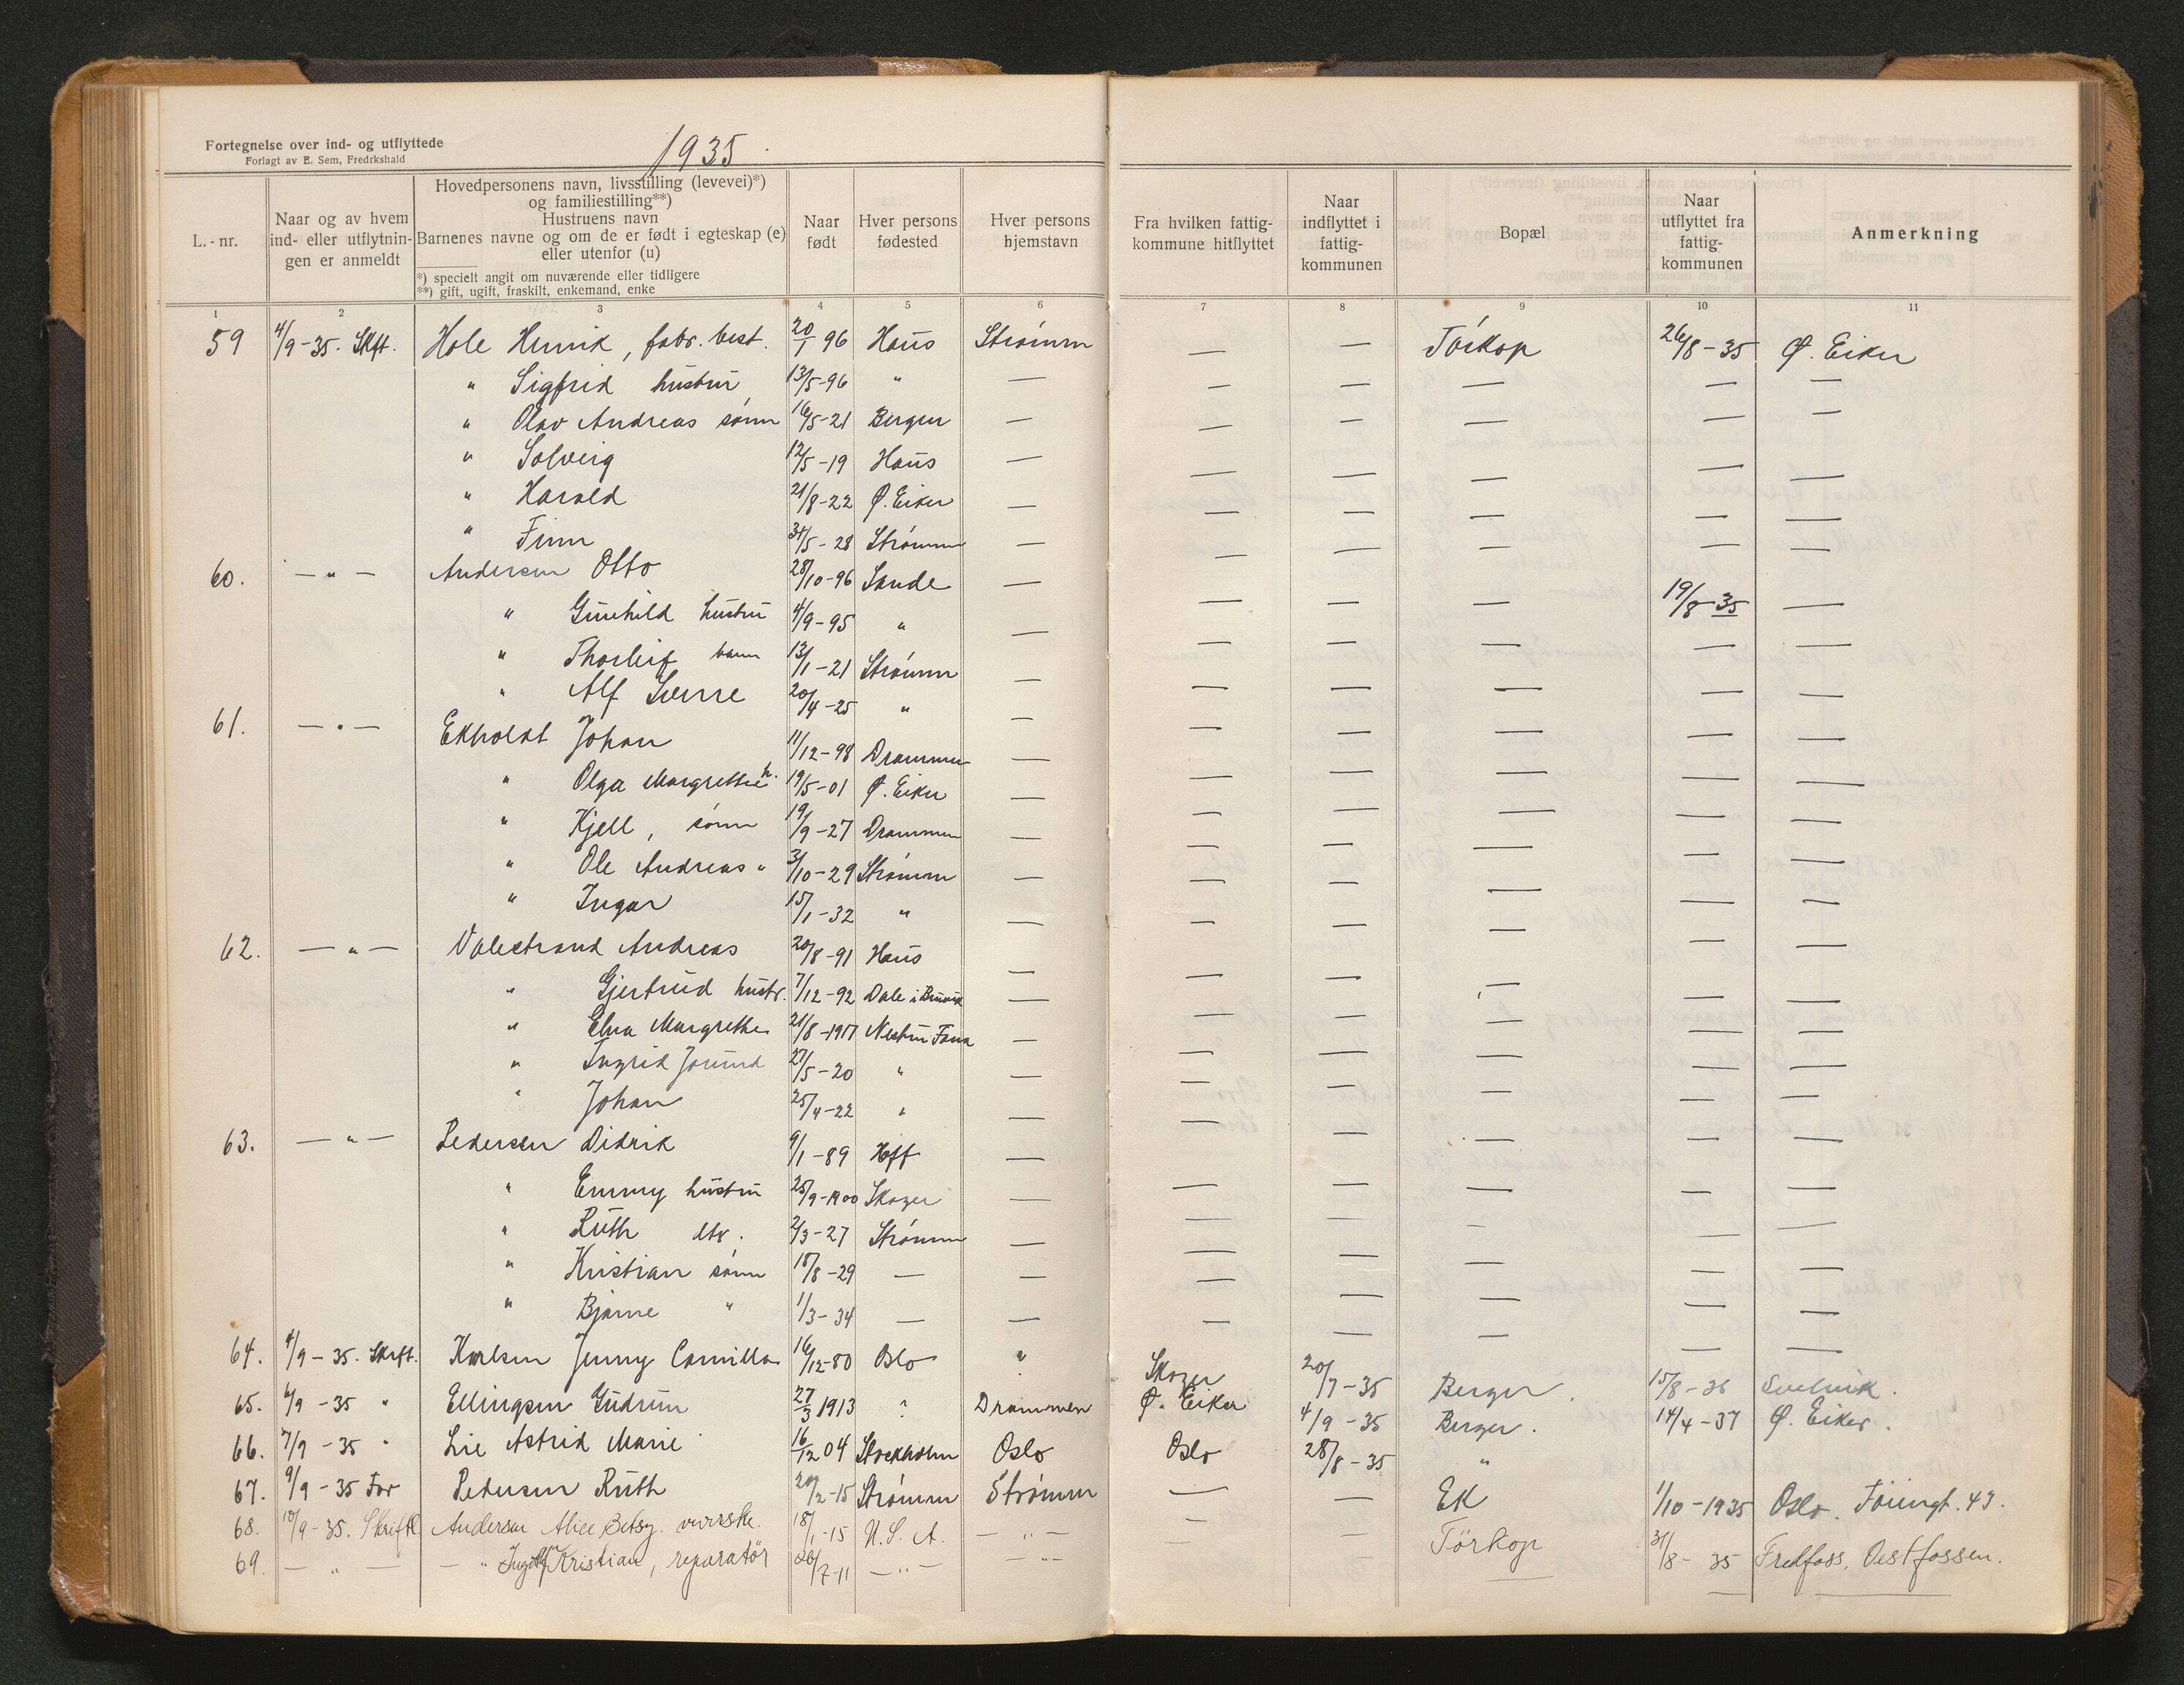 Fortegnelse over ind- og utflyttede
Forlagt av E. Sem, Fredrkshald
1935
L.-nr.
Naar og av hvem ind- eller utflytnin-gen er anmeldt
Hovedpersonens navn, livsstilling (levevei)*)
og familiestilling**)
Hustruens navn
Barnenes navne og om de er født i egteskap (e)
eller utenfor (u)
*) specielt angit om nuværende eller tidligere
**) gift, ugift, fraskilt, enkemand, enke
Naar født
Hver persons fødested
Hver persons hjemstavn
Fra hvilken fattig-kommune hitflyttet
Naar indflyttet i fattig-kommunen
Bopæl
Naar utflyttet fra fattig-kommunen
Anmerkning
1 2 3 4 5 6 7 8 9 10 11
59 4/9-35. Skft. Hole Henrik, fabr. best. 20/1 96 Haus Strømm — — Tørkop 26/8-35 Ø. Eiker
" Sigfrid hustru 13/5-96 " — — — — — —
" Olav Andreas sønn 16/5-21 Bergen — — — — — —
" Solveig 12/5-19 Haus — — — — — —
" Harald 21/8-22 Ø. Eiker — — — — — —
" Finn 31/5-28 Strømm — — — — — —
60. — " — Andersen Otto 28/10-96 Sande — — — — 19/8-35 —
" Gunhild hustru 4/9-95 " — — — — — —
" Thorleif barn 13/1-21 Strømm — — — — — —
" Alf Sverre 20/4-25 " — — — — — —
61. — " — Ekholdt Johan 11/12-98 Drammen — — — — — —
" Olga Margrethe h. 19/5-01 Ø. Eiker — — — — — —
" Kjell, sønn 19/9-27 Drammen — — — — — —
" Ole Andreas " 3/10-29 Strømm — — — — — —
" Ingar 15/1-32 " — — — — — —
62. — " — Valestrand Andreas 20/8-91 Haus — — — — — —
" Gjertrud hustr. 7/12-92 Dale i Bruvik — — — — — —
" Elna Margrethe 21/8-1917 Nestun Fana — — — — — —
" Ingrid Jorund 27/5-20 " — — — — — —
" Johan 25/4-22 " — — — — — —
63. — " — Pedersen Didrik 9/1-89 Hoff — — — — — —
" Emmy hustru 25/9-1900 Skoger — — — — — —
" Ruth dtr. 2/3-27 Strømm — — — — — —
" Kristian sønn 18/8-29 — — — — — — —
" Bjarne " 1/3-34 — — — — — — —
64. 4/9-35. Skrft. Karlsen Jenny Camilla 16/12-80 Oslo " Skoger 20/7-35 Berger. 15/8-36 Svelvik.
65. 4/9-35 " Ellingsen Gudrun 27/3 1913 ? Drammen Ø. Eiker 4/9-35 Berger. 14/4-37 Ø. Eiker.
66. 7/9-35 " Lie Astrid Marie 16/12 04 Stockholm Oslo Oslo 28/8-35 "
67. 9/9-35 For Pedersen Ruth 20/2-15 Strømm Strømm — — Ek 1/10-1935 Oslo. 43.
68. 10/9-35. Skriftl. Andersen Alice Betsy. 18/1-15 U.S.A. — " — — — Törkop 31/8-35 Fredfoss, Vestfossen.
69. — " — — " Ingolf Kristian, reparatør 26/7-11 — " — — " — — — — — —